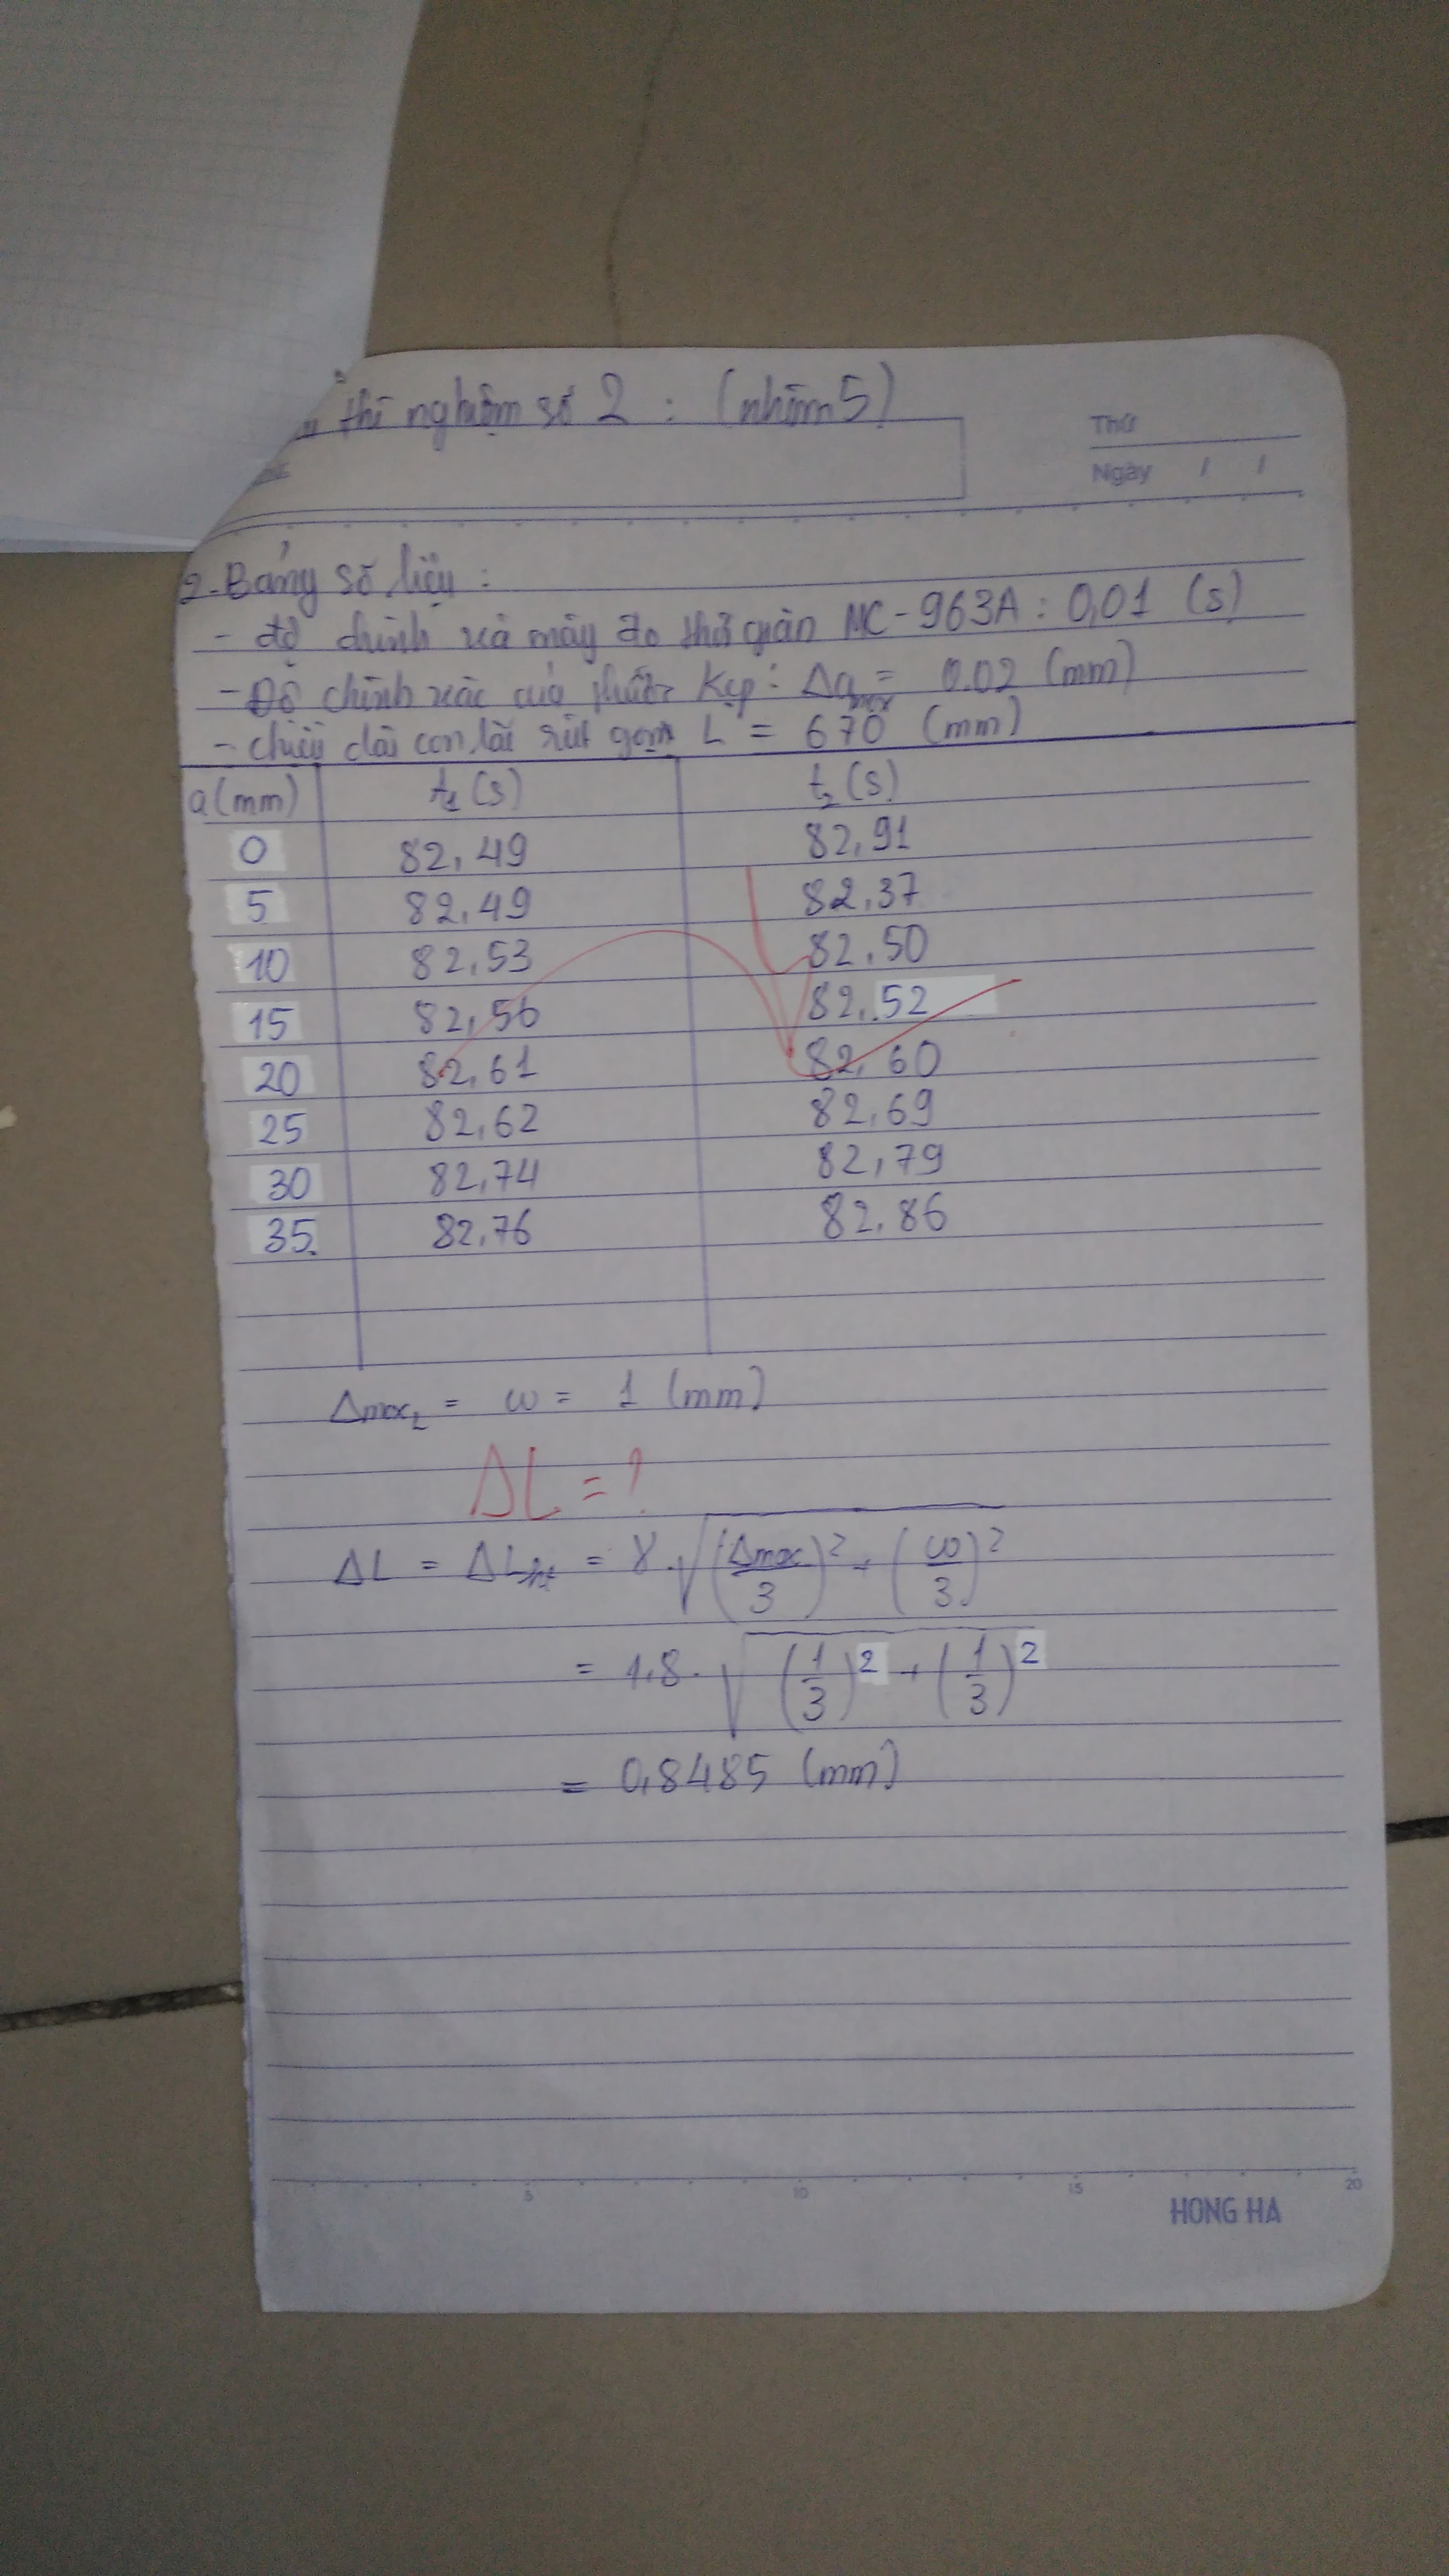 thí nghiệm số 2 : (nhóm 5)
Thứ
Ngày / /
2. Bảng số liệu :
- độ chính xá máy đo thời gian MC - 963A : 0,01 (s)
- Độ chính xác của thước kẹp : Δa max = 0.02 (mm)
- chiều dài con lắc rút gọn L = 670 (mm)
a (mm) t1 (s) t2 (s)
0 82,49 82,91
5 82,49 82,37
10 82,53 82,50
15 82,56 82,52
20 82,61 82,60
25 82,62 82,69
30 82,74 82,79
35. 82,76 82,86
Δmax L = ω = 1 (mm)
ΔL = ?
ΔL = ΔLht = γ.√(Δmax/3)² + (ω/3)²
= 1,8.√(1/3)² + (1/3)²
= 0,8485 (mm)
5 10 15 20
HONG HA